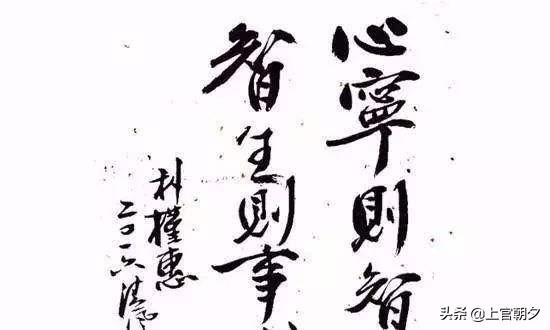 心寧則智
智生則事
朴槿惠
二〇一六
头条@上官朝夕